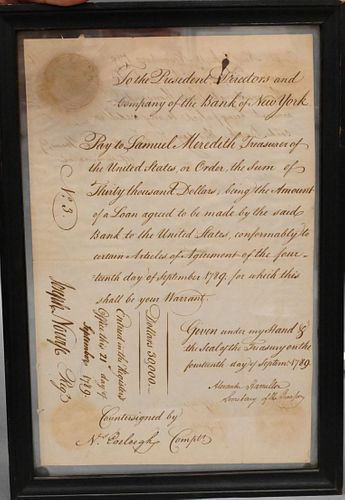 To the President Directors and
Company of the Bank of New York
Pay to Samuel Meredith Treasurer of
the United States, or Order, the Sum of
Thirty thousand Dollars; being the Amount
of a Loan agreed to be made by the said
Bank to the United States, conformably to
certain Articles of Agreement of the four-
teenth day of September 1789, for which this
shall be your Warrant.
Given under my Hand &
the Seal of the Treasury on the
fourteenth day of Septem. 1789.
Alexander Hamilton
Secretary of the Treasury
No. 3.
Dollars 30,000.—
Entered in the Registers
Office this 21 day of
September 1789.
Joseph Nourse Regr.
Countersigned by
Compt.